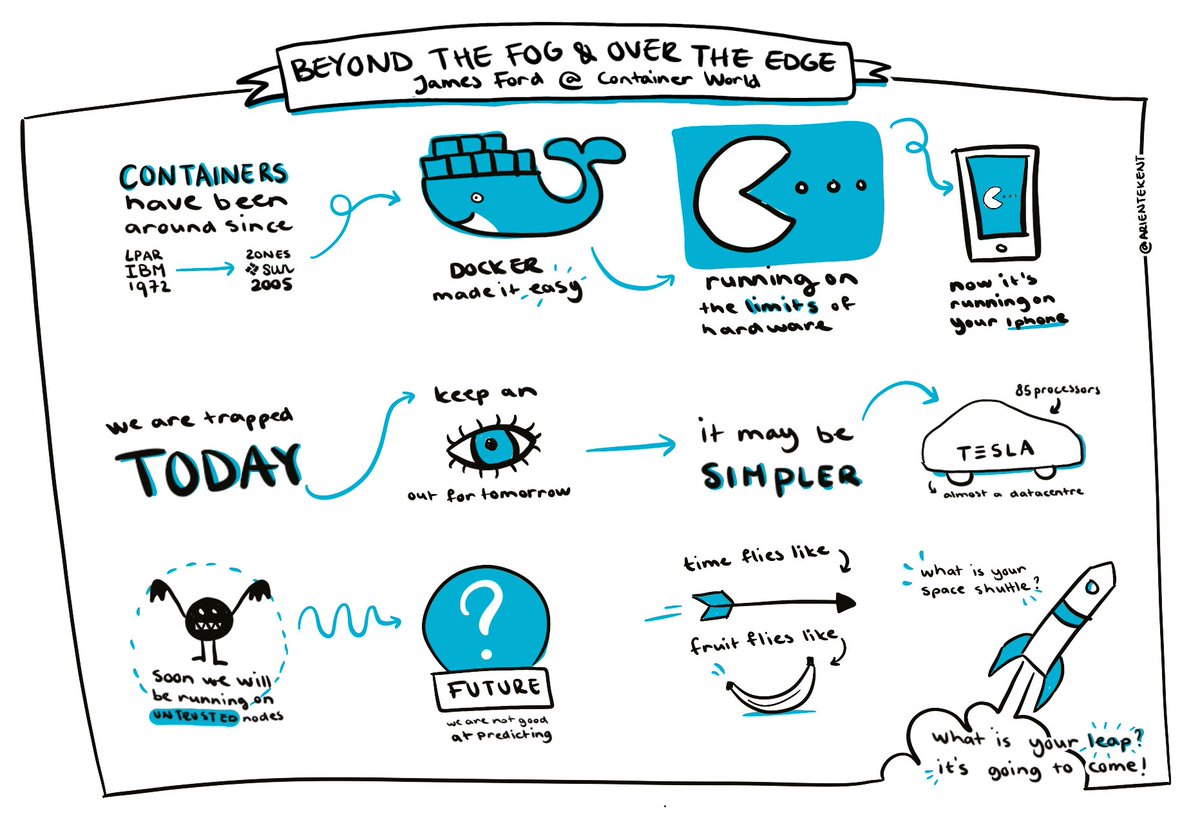 BEYOND THE FOG & OVER THE EDGE
James Ford @ Container World
@ARIENTEKENT
CONTAINERS
have been
around since
LPAR
IBM
1972
ZONES
sun
2005
DOCKER
made it easy
running on
the limits of
hardware
now it's
running on
your iphone
we are trapped
TODAY
keep an
out for tomorrow
it may be
SIMPLER
85 processors
TESLA
almost a datacentre
soon we will
be running on
UNTRUSTED nodes
?
FUTURE
we are not good
at predicting
time flies like
fruit flies like
what is your
space shuttle?
what is your leap?
it's going to come!